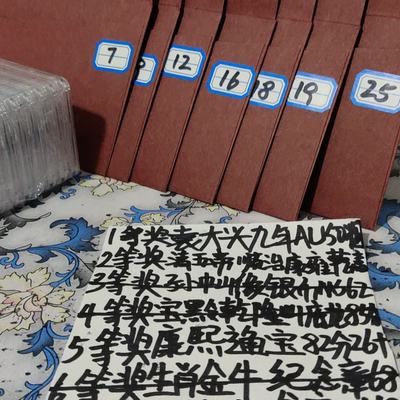 7
12
16
18
19
25
1等奖袁大头九年AU50
2等奖 五帝 顺治康雍乾嘉
3等奖 孙中山像银币MS62
4等奖宝黑乾隆
5等奖康熙通宝82分26+
6等奖生肖金牛纪念章68